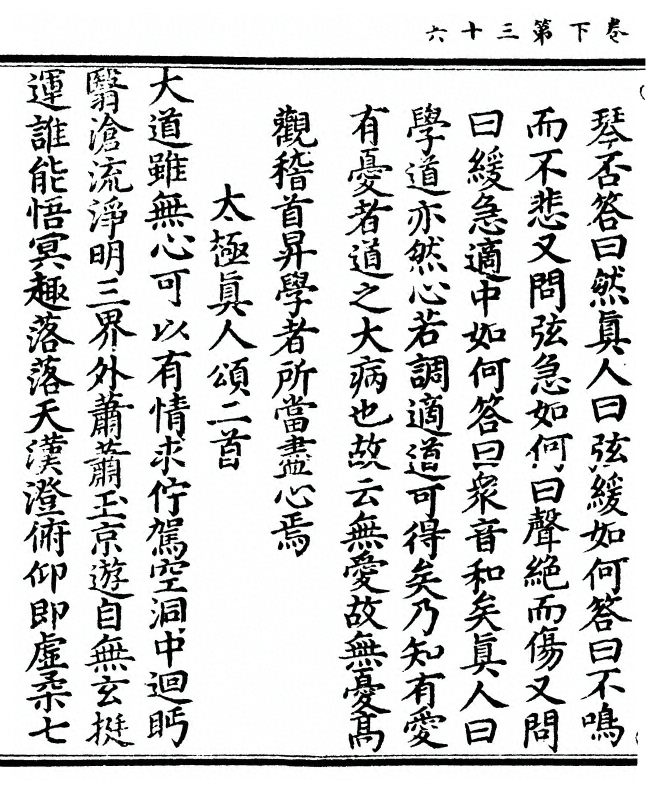 卷下第三十六
琴否答曰然眞人曰弦緩如何答曰不鳴
而不悲又問弦急如何曰聲絶而傷又問
曰緩急適中如何答曰衆音和矣眞人曰
學道亦然心若調適道可得矣乃知有愛
有憂者道之大病也故云無愛故無憂髙
觀稽首昇學者所當盡心焉
太極眞人頌二首
大道雖無心可以有情求佇駕空洞中迴眄
翳滄流淨明三界外蕭蕭玉京遊自無玄挺
運誰能悟冥趣落落天漢澄俯仰即虛柔七